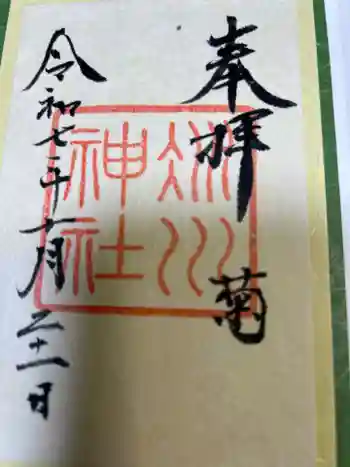 奉拝 菊
氷川
神社
令和七年十月二十一日